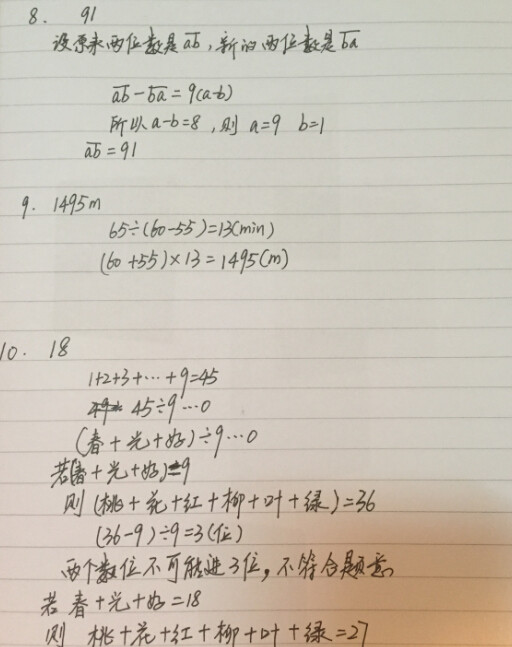 8. 91
设原来两位数是ab,新的两位数是ba
ab-ba=9(a-b)
所以a-b=8,则 a=9 b=1
ab=91
9. 1495m
65÷(60-55)=13(min)
(60+55)×13=1495(m)
10. 18
1+2+3+…+9=45
45÷9…0
(春+光+好)÷9…0
若(春+光+好)=9
则(桃+花+红+柳+叶+绿)=36
(36-9)÷9=3(位)
两个数位不可能进3位,不符合题意。
若 春+光+好=18
则 桃+花+红+柳+叶+绿=27